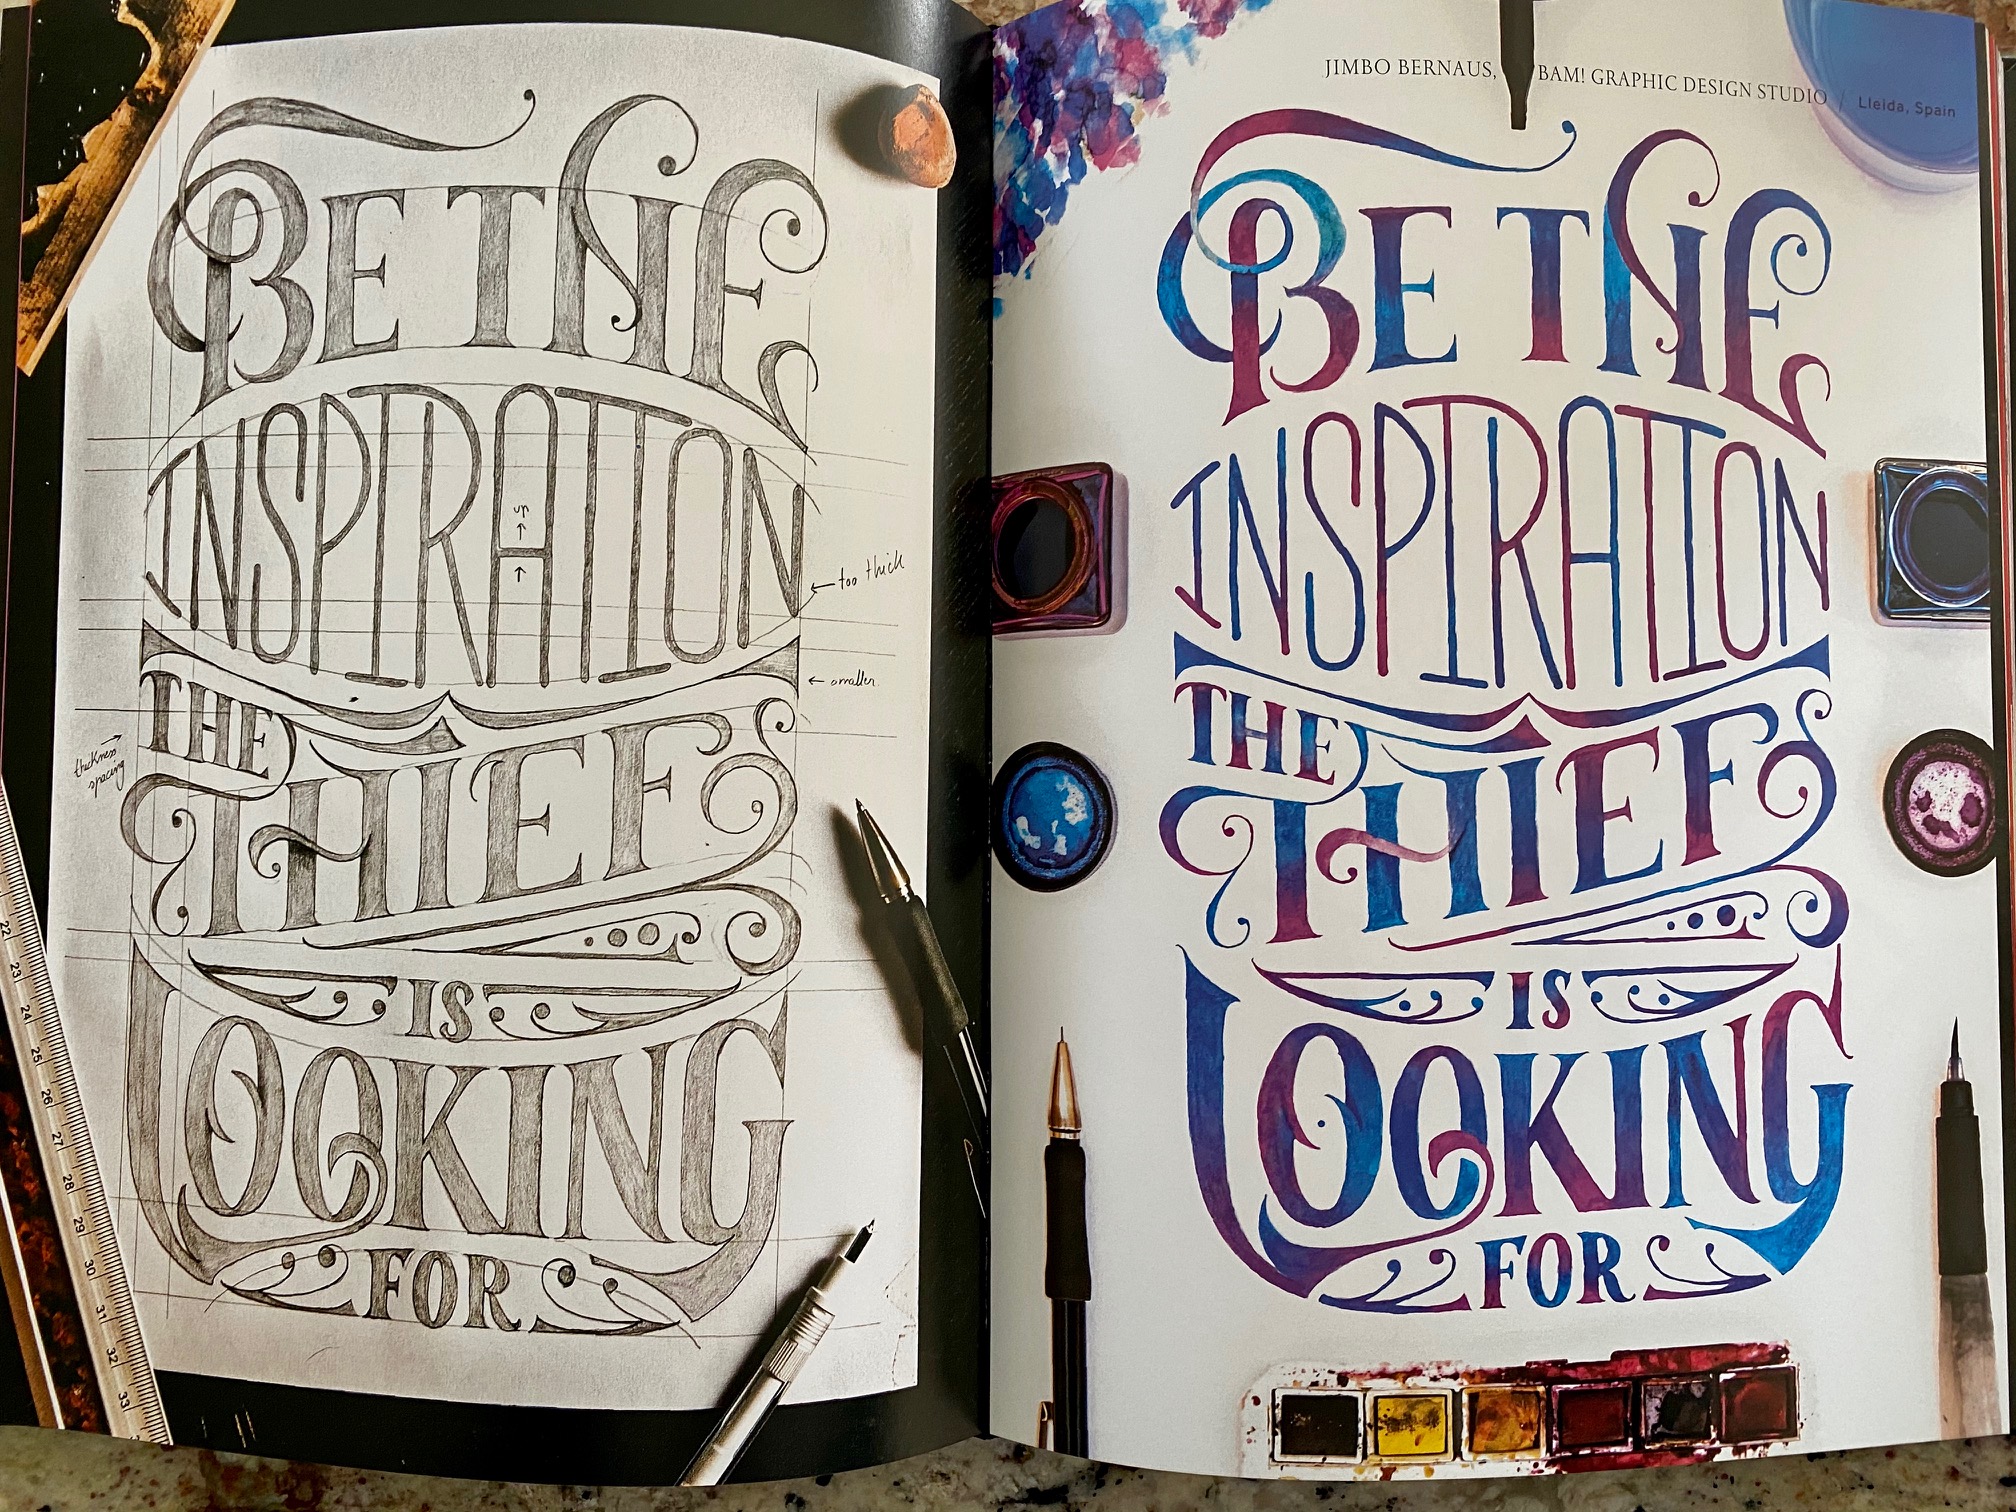 BE THE
INSPIRATION
up
← too thick
← smaller.
THE
thickness
spacing
THIEF
IS
LOOKING
FOR
22
23
24
25
26
27
28
29
30
31
32
33
JIMBO BERNAUS, BAM! GRAPHIC DESIGN STUDIO / Lleida, Spain
BE THE
INSPIRATION
THE
THIEF
IS
LOOKING
FOR